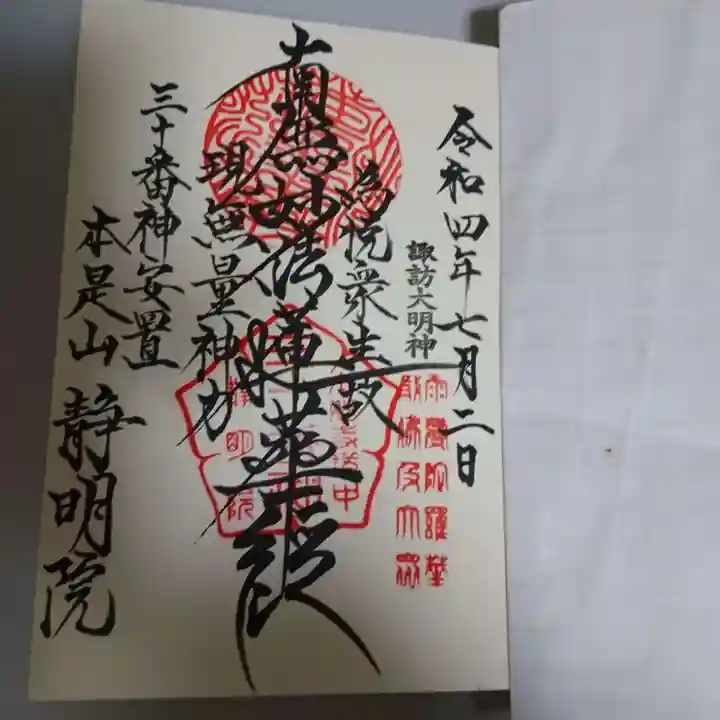 令和四年七月二日
諏訪大明神
雨曼陀羅華
散佛及大衆
為悦衆生故
南無妙法蓮華経
現無量神力
三十番神安置
本是山 静明院